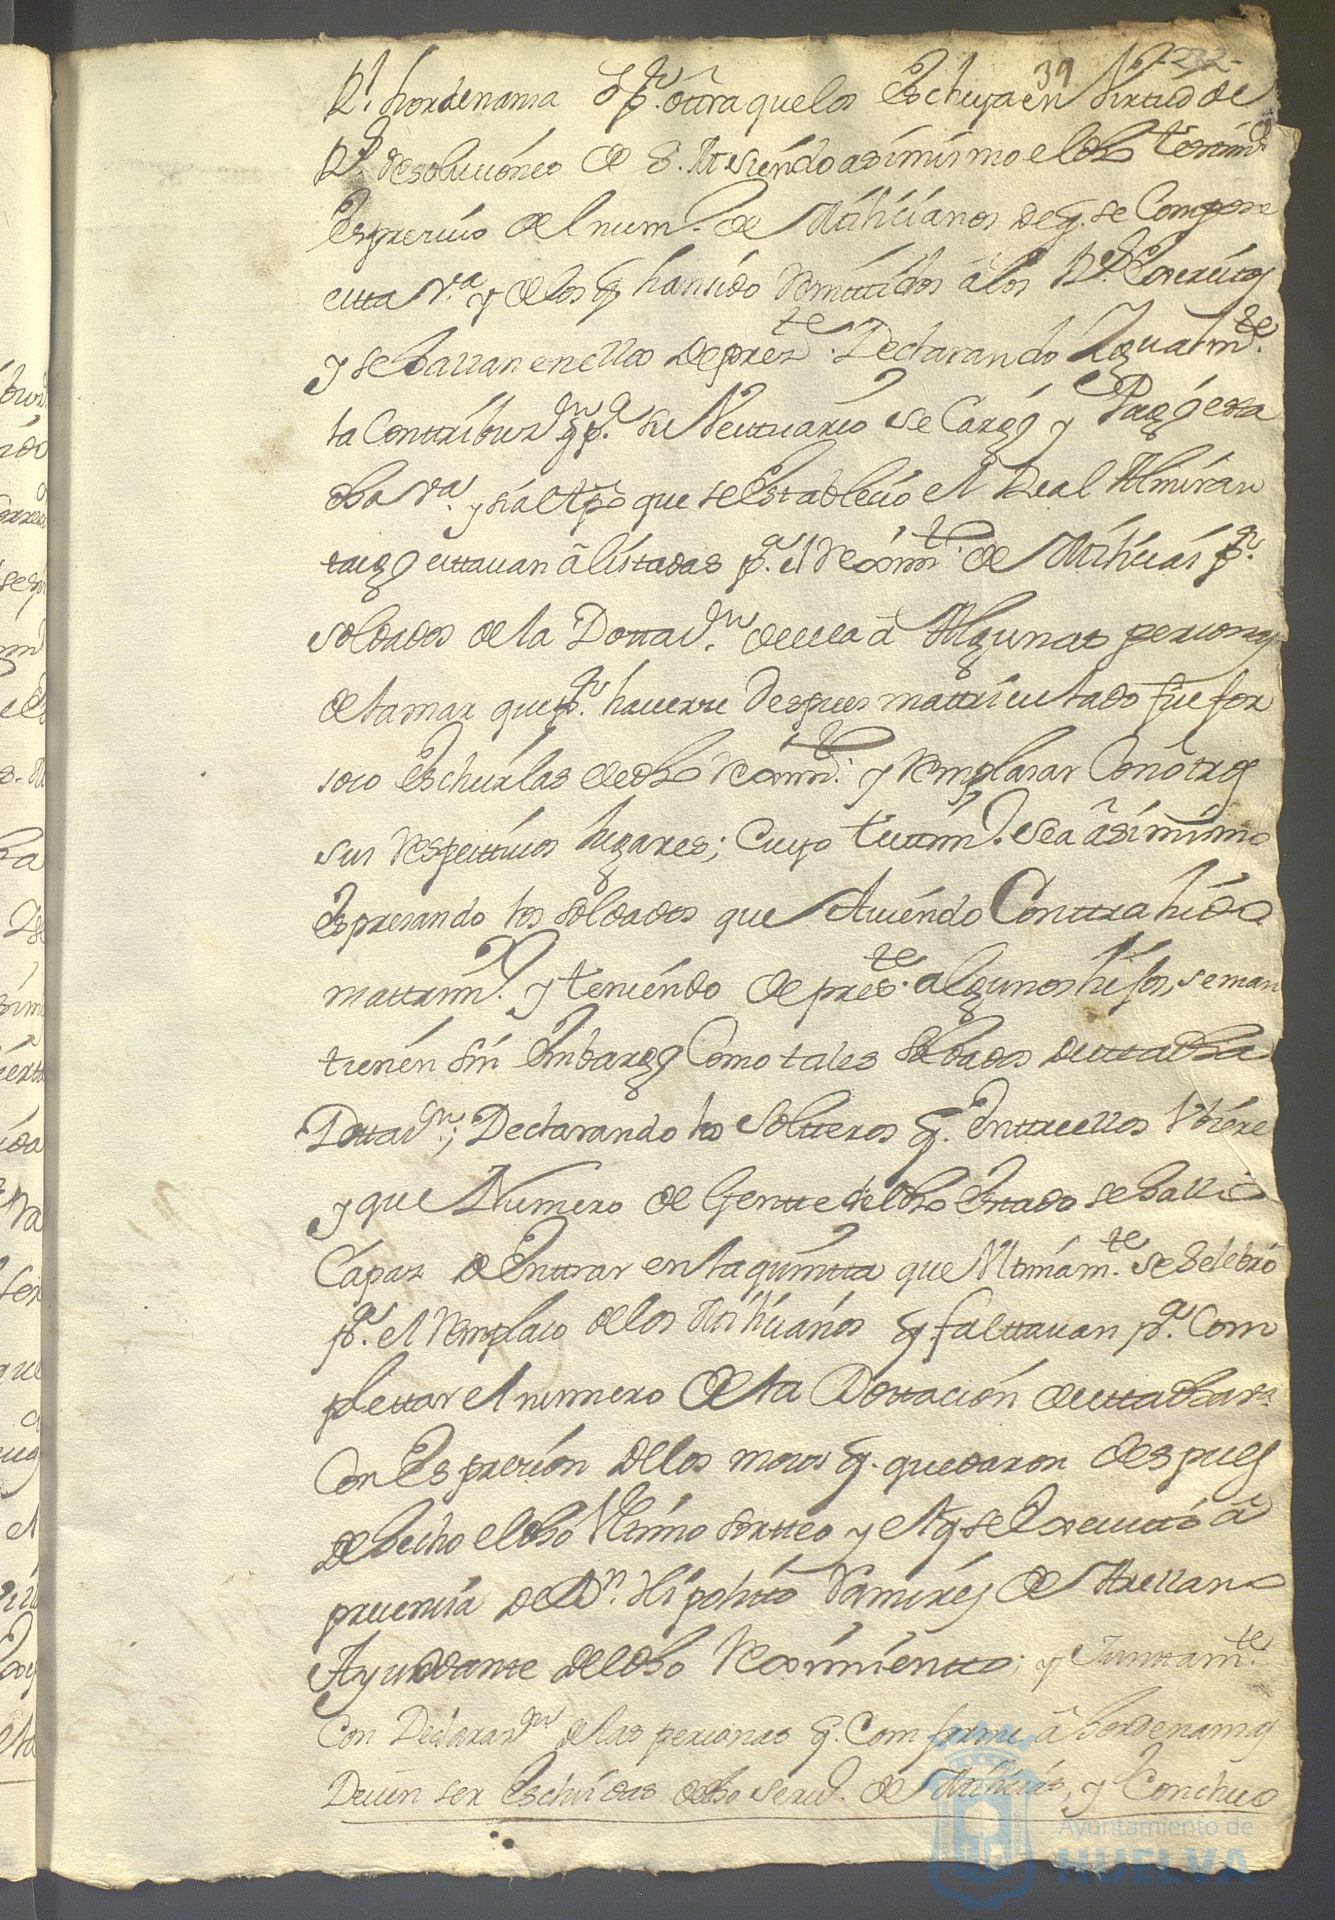 39 232-
Rl. hordenansa ô pr. ôtra que los Escluya en Virtud de
Rs. Resoluciones de S. M. siendo asimismo el dho testimo.
Espresiuo del num.o de Milicianos de q. se Compone
esta va. y de los q. han sido Remitidos â los Rs. Exercitos
y se hallan en ellos de preste. Declarando Igualmte.
la Contribuzn. q. pa. su Vestuario se Cargó y Pagó esta
dha va. y si al tpo que se Estableció el Real Almiran
tazgo estauan âlistadas pa. el Reximto. de Milicias pr.
soldados de la Dottazn. de ella â Algunas personas
de la mar que pr. hauerse despues matriculado fue for
soso Escluirlas de dho Reximto. y Remplasar Con ôtros
sus respectiuos lugares; Cuyo testimo. sea âsimismo
Espresando los soldados que Auiendo Contrahido
mattrimo. y teniendo de preste. algunos hijos, se man
tienen sin Embargo Como tales soldados de esta dha
Dottazn.; Declarando los solteros q. Entre ellos Vbiere
y que Numero de Gente del dho Estado se halló
Capaz de Entrar en la quinta que Vltimamte. se Selebró
pa. el Remplaso de los Milicianos q. faltauan pa. Com
plettar el numero de la Dottacion de esta dha va.
Con Espresion de los mosos q. quedaron despues
de hecho el dho Vltimo sorteo y el q. se Executó â
presencia de Dn. Hipolito Ramires de Arellano
Ayudante del dho Reximiento; y Juntamte.
Con Declarazn. de las personas q. Comforme â hordenansas
Deuen ser Escluidas de dho serui. de Milicias, y Concluso
Ayuntamiento de
HUELVA